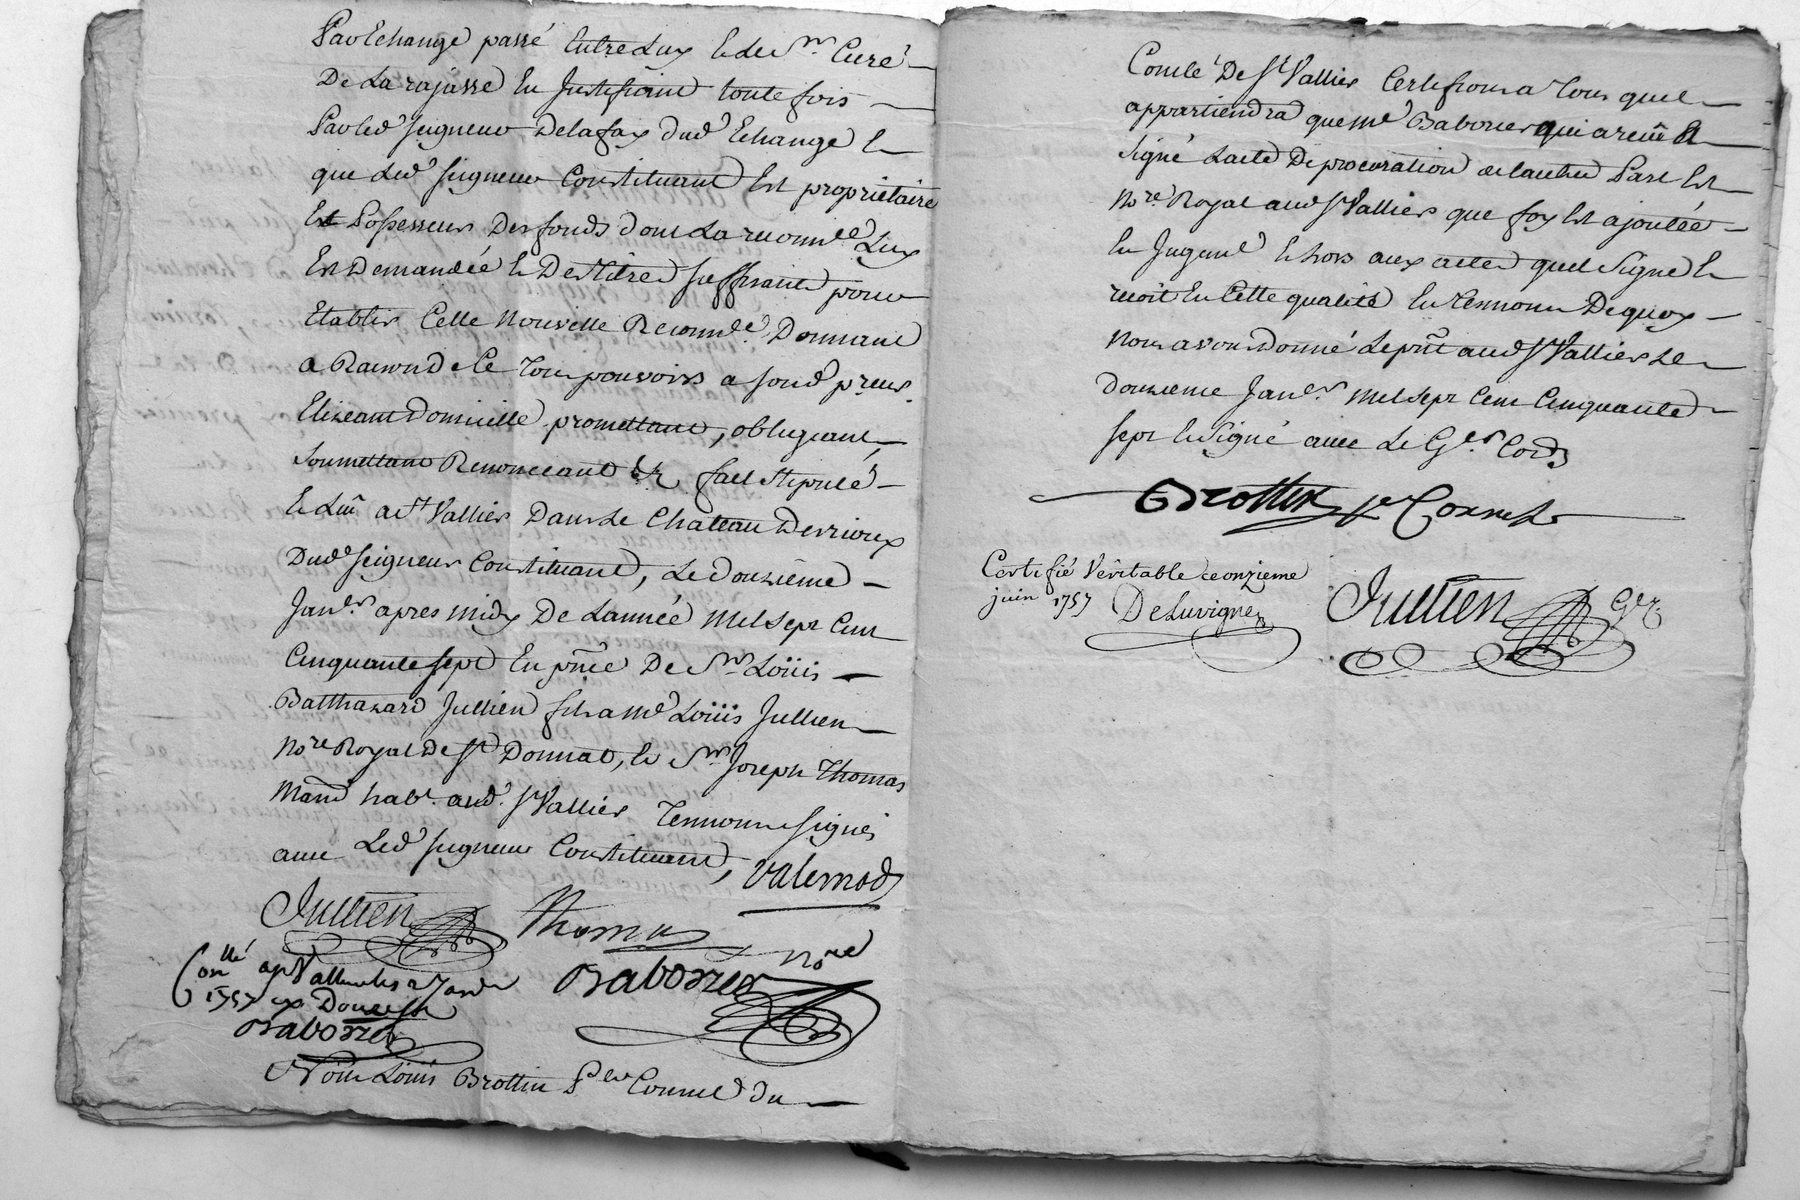 Par Echange passé Entre Luy & led. Sr. Curé
De La rajasse En Justifiant toute fois
Par led. seigneur Delafay dud. Echange &
que Led. seigneur Constituant Est propriétaire
Et Possesseur Des fonds dont La reconnce. Luy
Est Demandée & De titre suffisant pour
Etablir Cette Nouvelle Reconnce. Donnant
a Raison de Ce Tous pouvoirs a sond. preur.
Elizant Domicille promettant, obligeant,
soumettant Renonceant &r. fait stipulé
& Lûu a St. Vallier Dans Le Chateau
Dud. seigneur Constituant, Le douzieme
Janer. apres midy De Lannée Mil sept Cent
Cinquante sept En pñce De Sr. Loüis
Balthazard Jullien fils a Me. Loüis Jullien
Nore. Royal De St. Donnat, & Sr. Joseph Thomas
Mand habt. aud. St. Vallier Temoins signés
avec Led. seigneur Constituant, Valernod
Jullien Thomas
Nore
Baborier
Conllé ap St Vallier les 2 Janer
1757
Baborier
Nous Louis Brottin Per Connel du
Comté De St. Vallier Certifions a Tous quil
appartiendra que Me. Baborier qui a receu &
signé Lacte De procuration de lautre Part Est
Nore. Royal aud. St. Vallier que foy Est ajoutée
En Jugemt. & hors aux actes quil signe &
recoit En Cette qualité En Temoin De quoy
Nous avons donné Le pñt aud. St. Vallier Le
Douzieme Janer. Mil sept Cent Cinquante
sept & signé avec Le Ger.
Brottin pr Connel
Certifié Véritable ce onzieme
juin 1757
DeLuvigne
Jullien Ger.